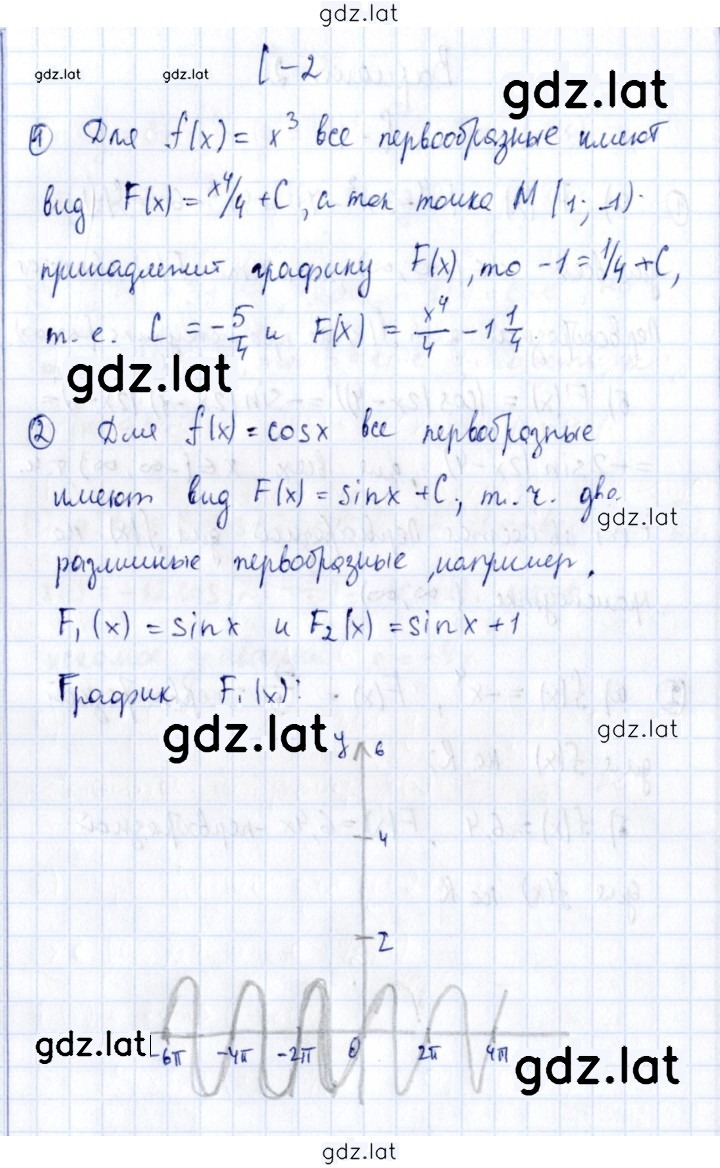 gdz.lat
gdz.lat gdz.lat С-2 gdz.lat
① Для f(x) = x³ все первообразные имеют
вид F(x) = x⁴/4 + C, а так точка M (1; -1)
принадлежит графику F(x), то -1 = 1/4 + C,
т. е. C = -5/4 и F(x) = x⁴/4 - 1 1/4.
gdz.lat
② Для f(x) = cosx все первообразные
имеют вид F(x) = sinx + C, т. ч. две
gdz.lat
различные первообразные, например,
F₁(x) = sinx и F₂(x) = sinx + 1
График F₁(x):
gdz.lat
gdz.lat
y 6
4
2
gdz.lat
-6π -4π -2π 0 2π 4π
gdz.lat
gdz.lat